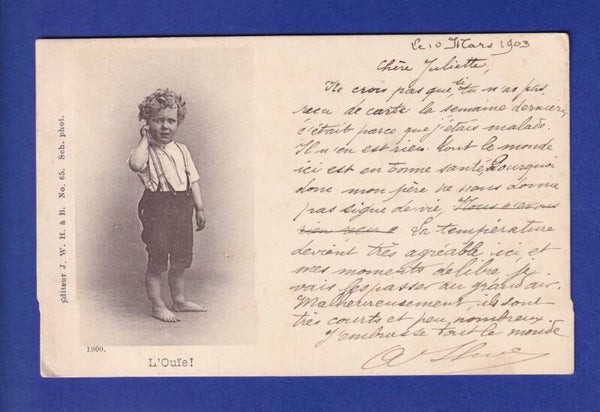 Le 10 Mars 1903
Chère Juliette,
Ne crois pas que si tu n'as pas
recu de carte la semaine dernière,
c'était parce que j'étais malade.
Il n'en est rien tout le monde
ici est en bonne santé, Pourquoi
donc mon père ne nous donne
pas signe de vie, Nous n'avons
rien recu La température
devient très agréable ici, et
mes moments de libre, je
vais les passer au grand air.
Malheureusement, ils sont
très courts et peu nombreux.
J'embrasse tout le monde
Editeur J. W. H. à B. No. 65. Sch. phot.
1900.
L'Ouïe!